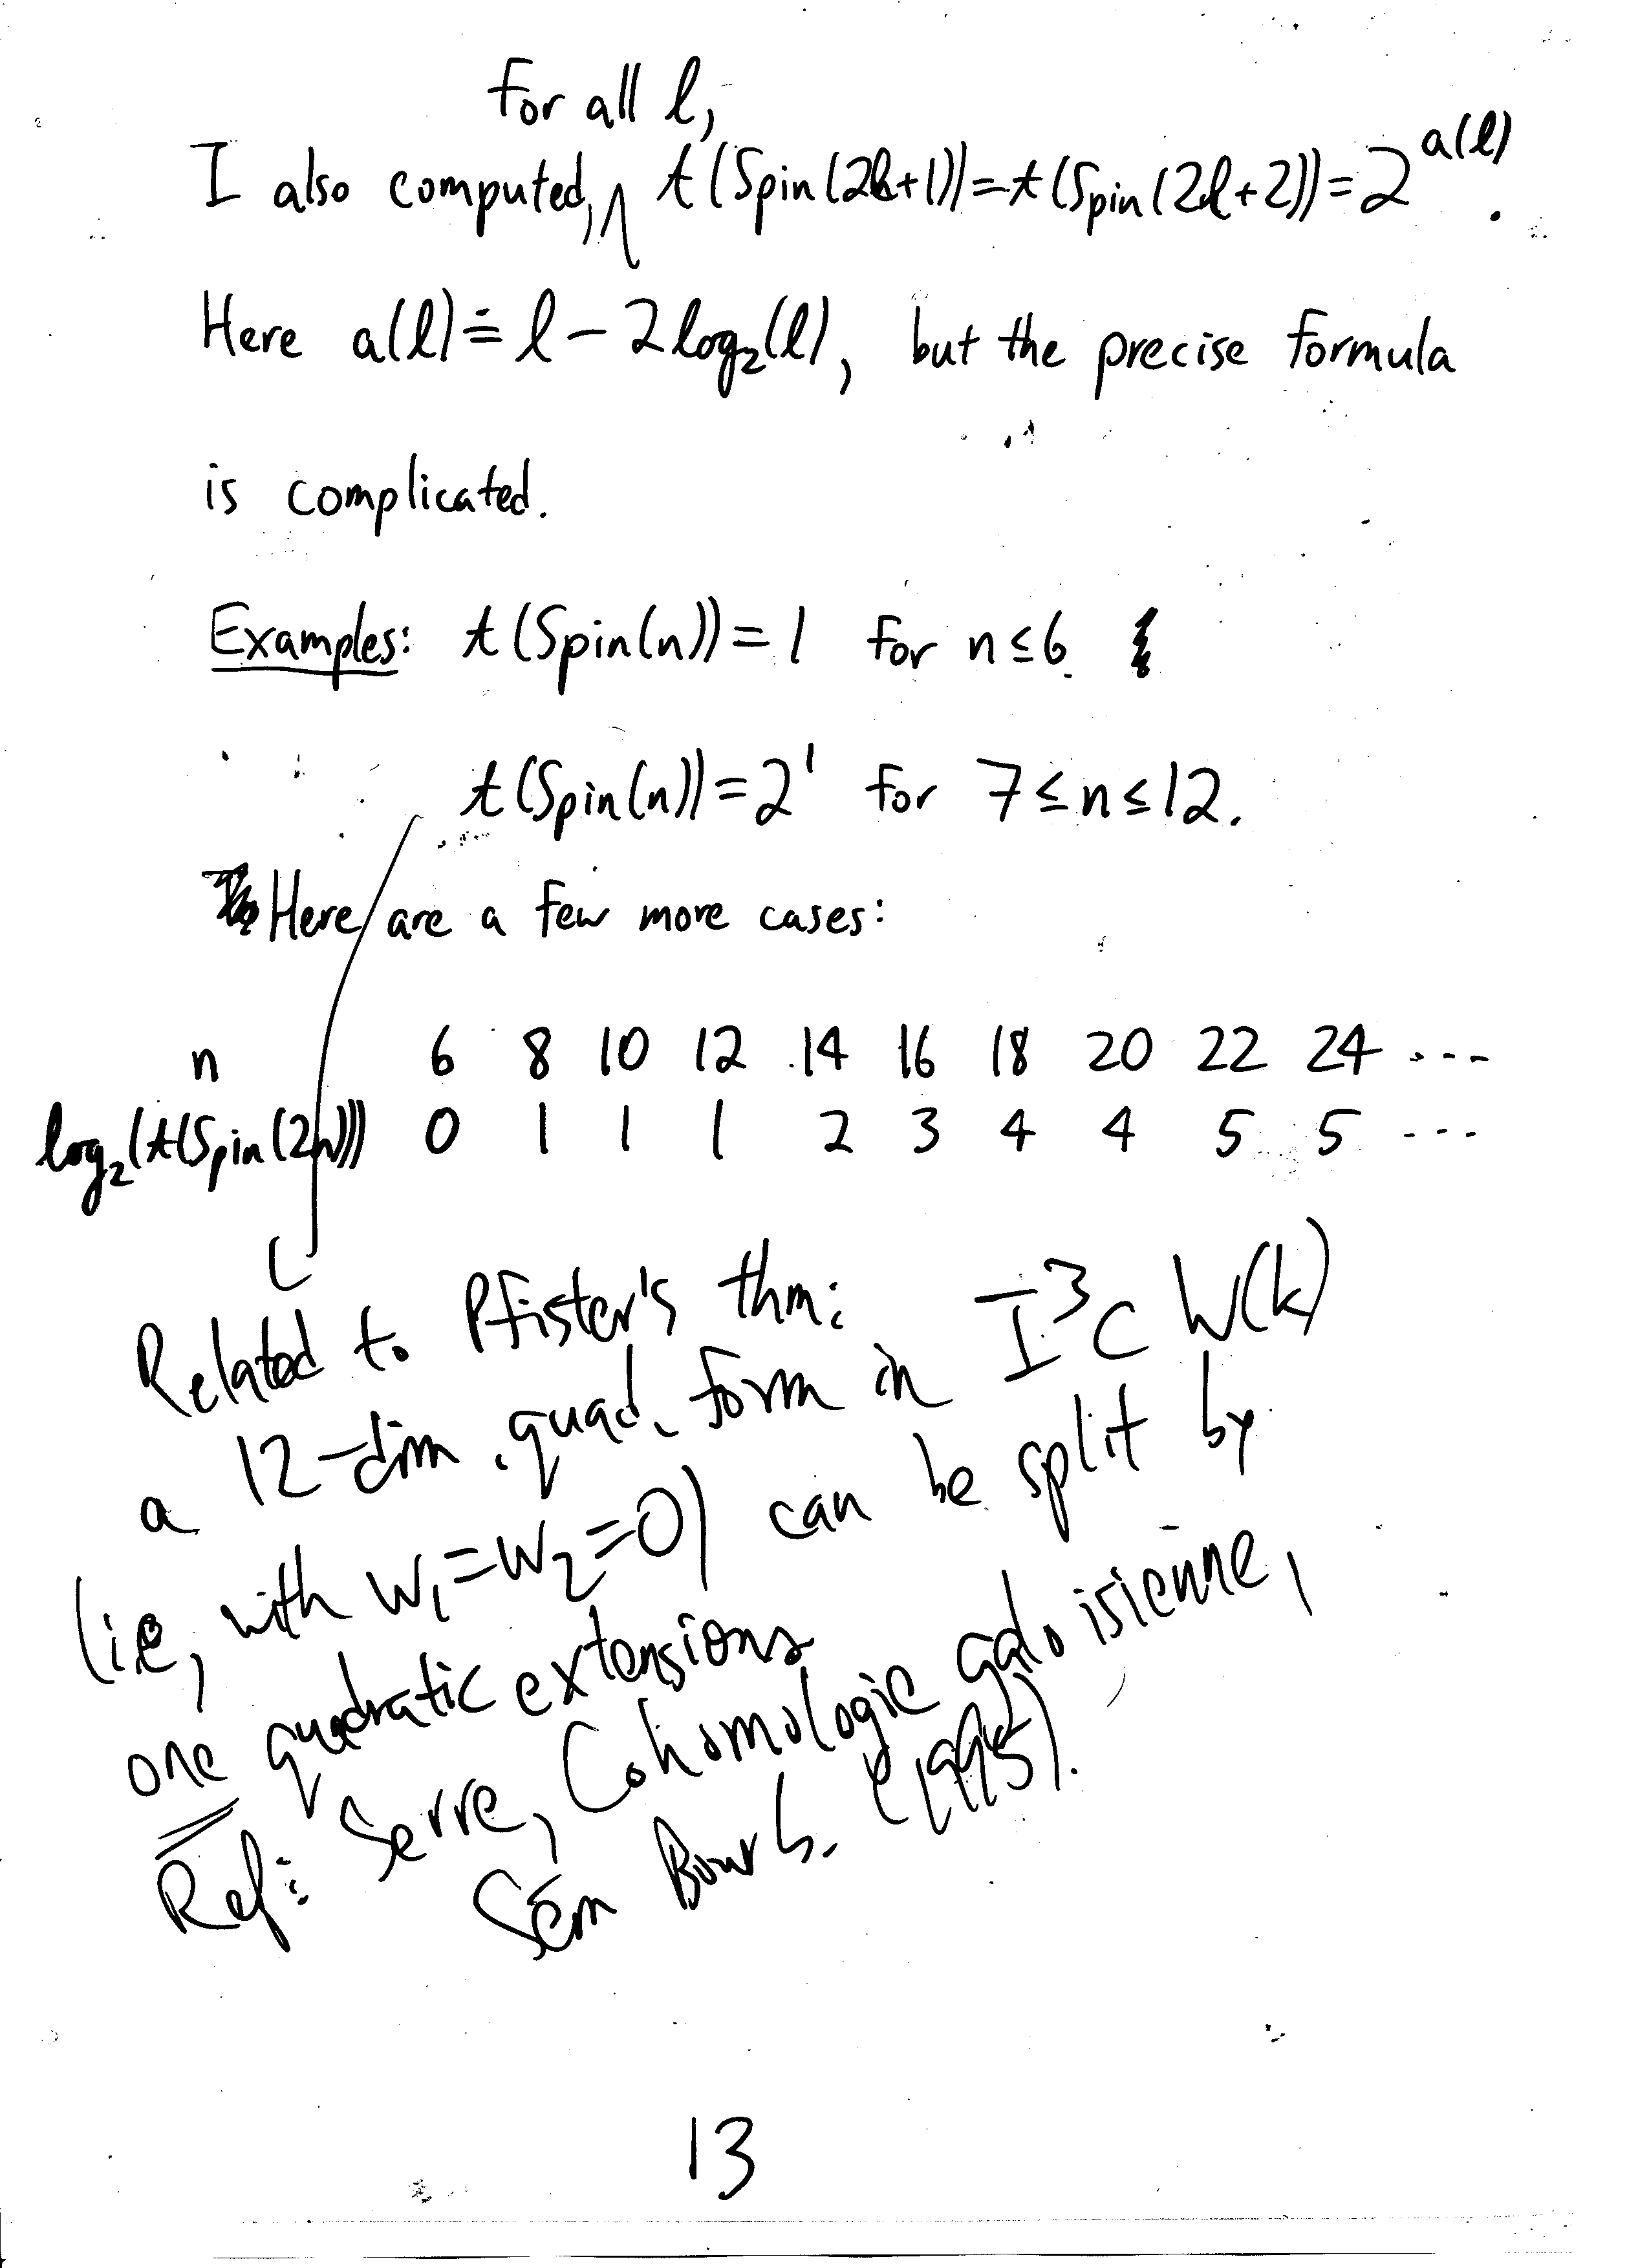 for all ℓ,
I also computed, t(Spin(2ℓ+1))=t(Spin(2ℓ+2))=2^{a(ℓ)}.
Here a(ℓ)≐ℓ-2log₂(ℓ), but the precise formula
is complicated.
Examples: t(Spin(n))=1 for n≤6.
t(Spin(n))=2¹ for 7≤n≤12.
Here are a few more cases:
n 6 8 10 12 14 16 18 20 22 24 ...
log₂(t(Spin(2n))) 0 1 1 1 2 3 4 4 5 5 ---
Related to Pfister's thm:
a 12-dim. quad. form in I³⊂W(k)
(ie, with w₁=w₂=0) can be split by
one quadratic extension.
Ref: Serre, Cohomologie galoisienne,
Sém Bourb. (1995).
13